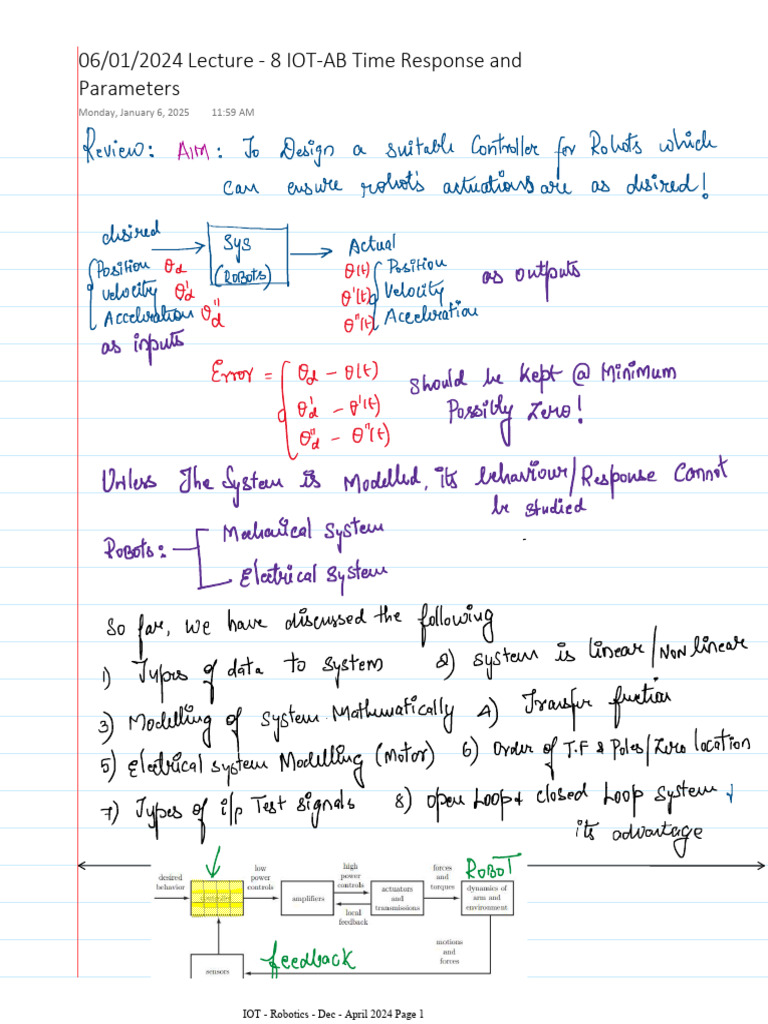 06/01/2024 Lecture - 8 IOT-AB Time Response and
Parameters
Monday, January 6, 2025 11:59 AM
Review: AIM: To Design a suitable Controller for Robots which
can ensure robot's actuations are as desired!
desired
Sys
(ROBOTS)
Actual
Position θd
velocity θ'd
Acceleration θ''d
as inputs
θ(t) Position
θ'(t) Velocity
θ''(t) Acceleration
as outputs
Error = θd - θ(t)
θ'd - θ'(t)
θ''d - θ''(t)
Should be kept @ Minimum
Possibly Zero!
Unless The System is Modelled, its behaviour/Response Cannot
be studied
Robots:
Mechanical System
Electrical System
So far, we have discussed the following
1) Types of data to system 2) System is linear/Non linear
3) Modelling of System Mathematically 4) Transfer function
5) Electrical system Modelling (Motor) 6) Order of T.F & Poles/Zero location
7) Types of i/p Test signals 8) open Loop & closed Loop System &
its advantage
desired
behavior
controller
low
power
controls
amplifiers
high
power
controls
local
feedback
actuators
and
transmissions
forces
and
torques
ROBOT
dynamics of
arm and
environment
motions
and
forces
feedback
sensors
IOT - Robotics - Dec - April 2024 Page 1